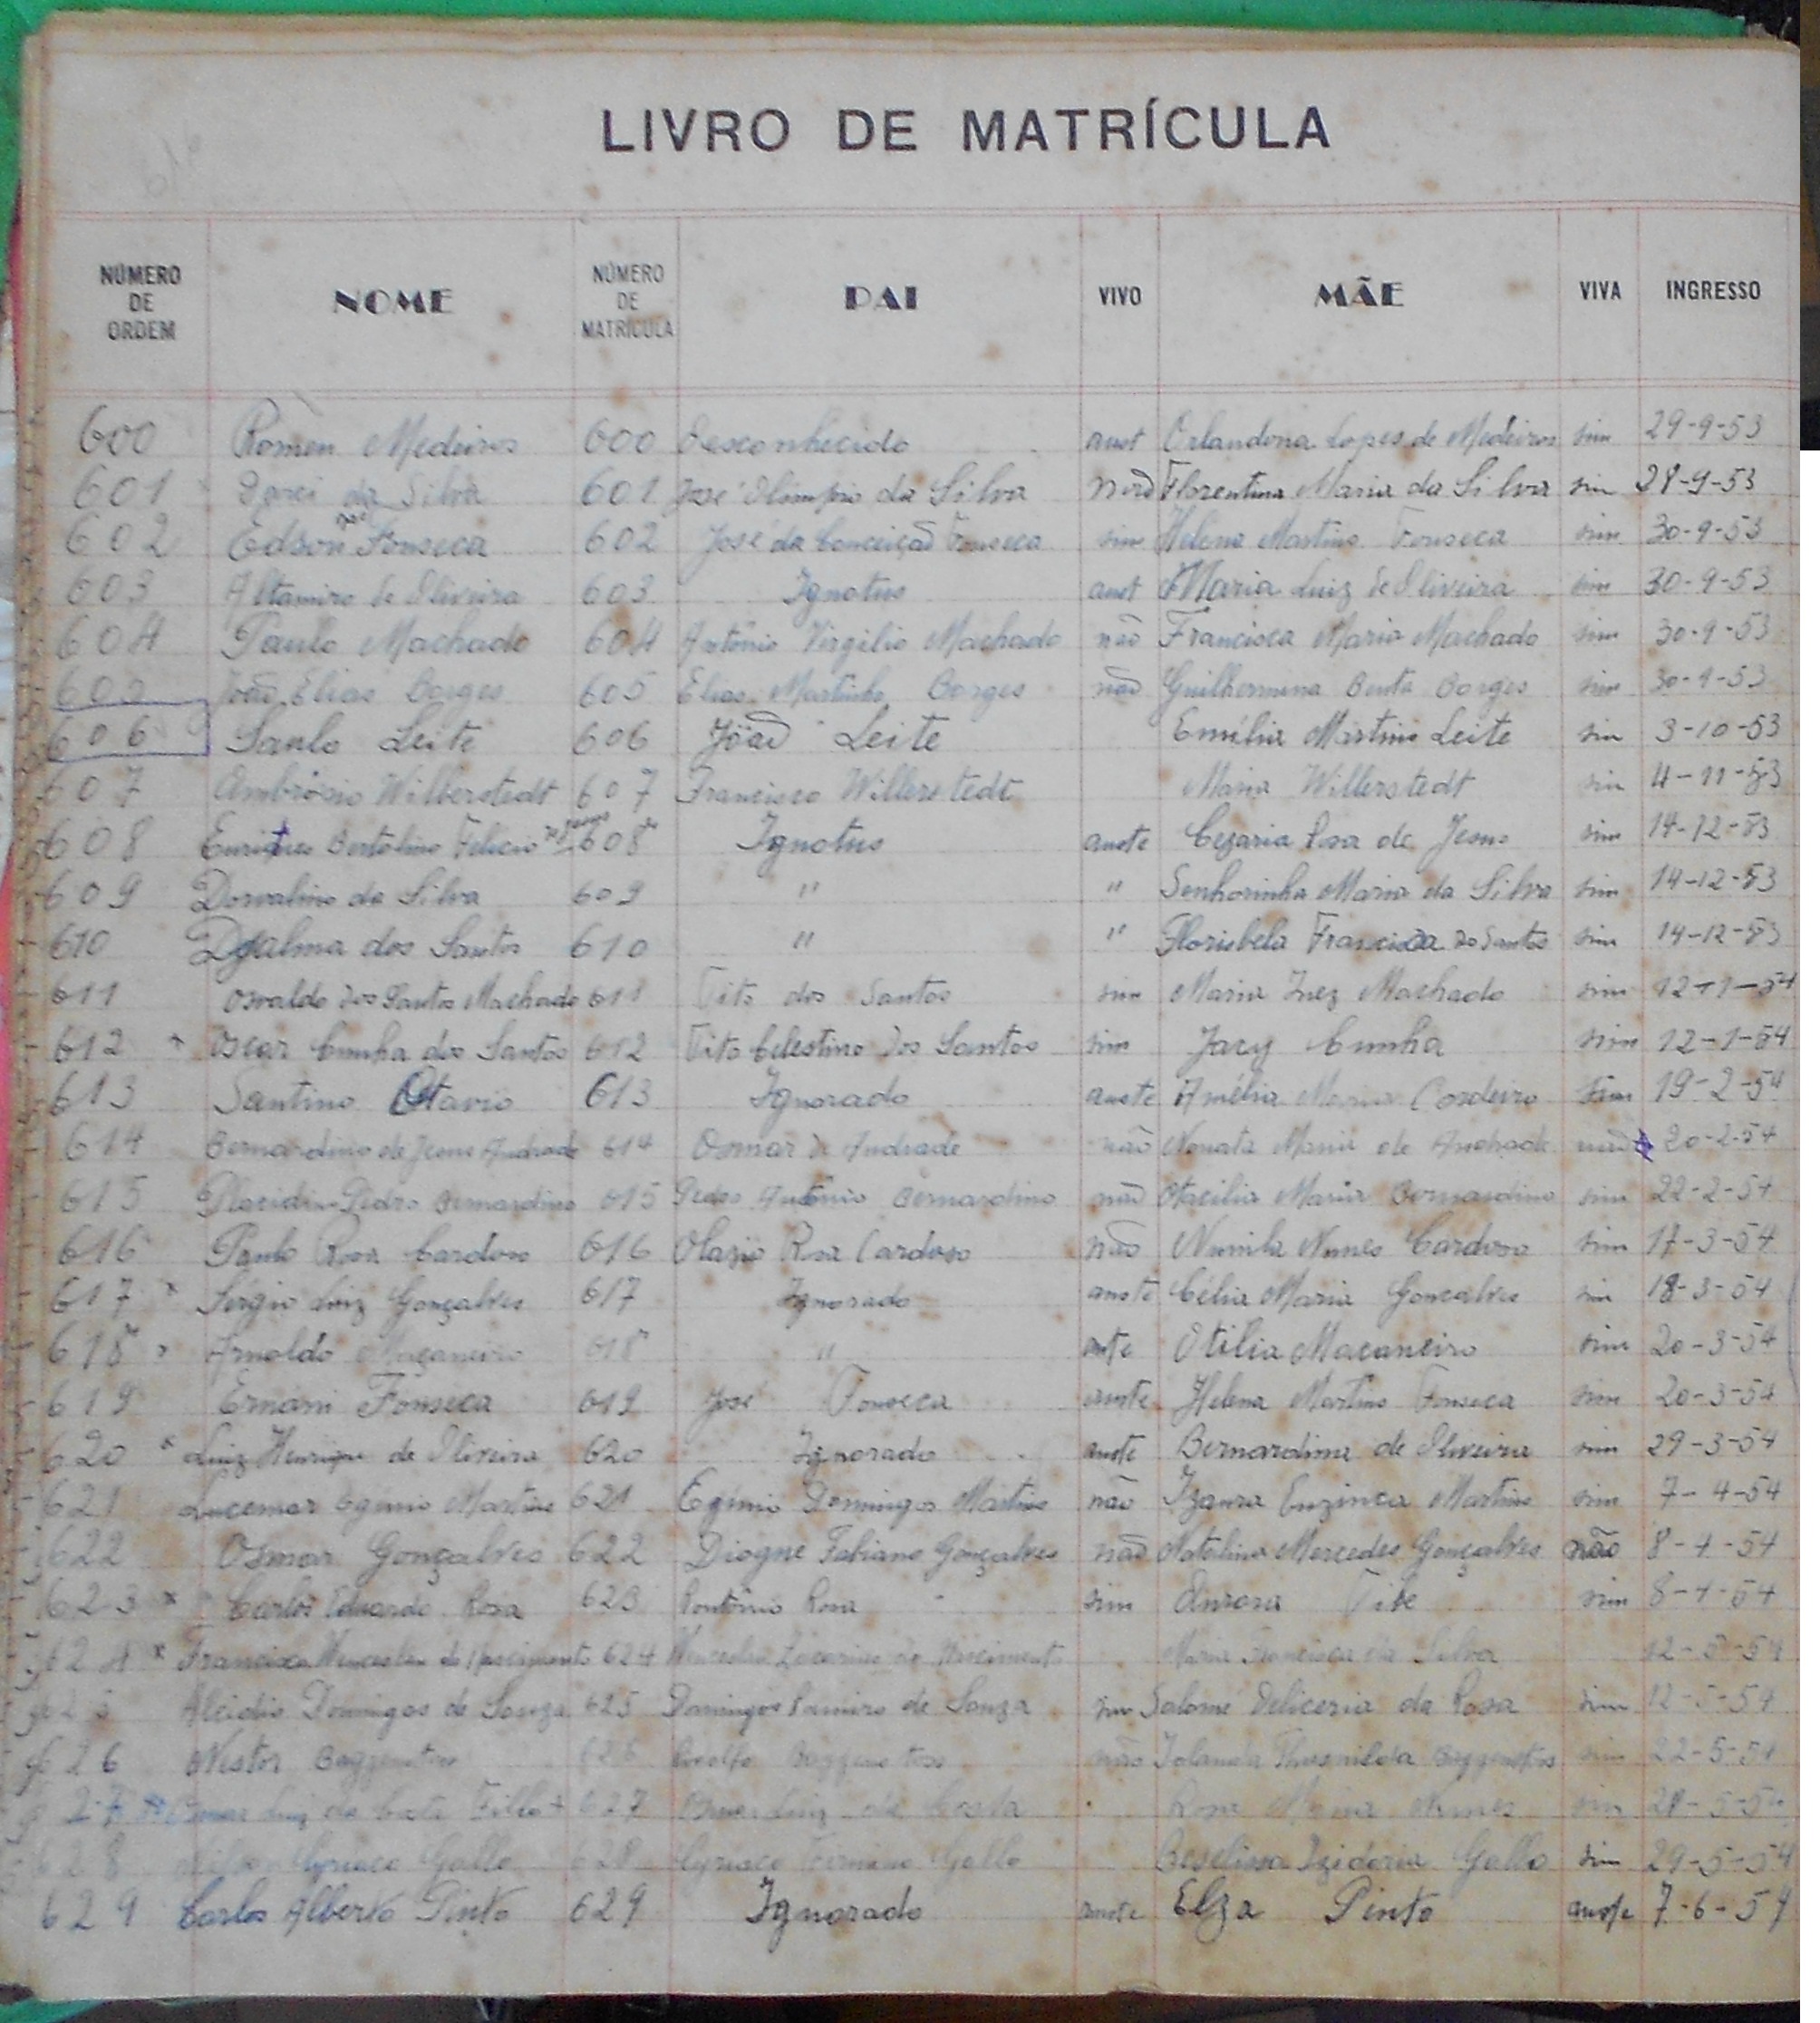 LIVRO DE MATRÍCULA
NÚMERO DE ORDEM NOME NÚMERO DE MATRÍCULA PAI VIVO MÃE VIVA INGRESSO
600 Romeu Medeiros 600 Desconhecido aust Orlandona Lopes de Medeiros sim 29-9-53
601 da Silva 601 José Olimpio da Silva não Florentina Maria da Silva sim 28-9-53
602 Edson José Fonseca 602 José da Conceição Fonseca sim Helena Martins Fonseca sim 30-9-53
603 Altamiro de Oliveira 603 Ignotus aust Maria Luiz de Oliveira sim 30-9-53
604 Paulo Machado 604 Antônio Virgilio Machado não Francisca Maria Machado sim 30-9-53
605 João Elias Borges 605 Elias Martinho Borges não Guilhermina Benta Borges sim 30-9-53
606 Saulo Leite 606 João Leite Emília Martins Leite sim 3-10-53
607 Ambrósio Willerstedt 607 Francisco Willerstedt Maria Willerstedt sim 4-11-53
608 Bertolino Felicio 608 Ignotus auste Cezaria Rosa de Jesus sim 14-12-53
609 Dorvalino da Silva 609 " " Senhorinha Maria da Silva sim 14-12-53
610 Djalma dos Santos 610 " " Florisbela Francisca dos Santos sim 14-12-53
611 Osvaldo dos Santos Machado 611 Tito dos Santos sim Maria Inez Machado sim 12-1-54
612 Oscar Cunha dos Santos 612 Tito Celestino dos Santos sim Jacy Cunha sim 12-1-54
613 Santino Otavio 613 Ignorado auste Amélia Maria Cordeiro sim 19-2-54
614 Bernardino de Jesus Andrade 614 Osmar de Andrade não Nonata Maria de Andrade não 20-2-54
615 Pedro Bernardino 615 Pedro Antônio Bernardino não Otacilia Maria Bernardino sim 22-2-54
616 Paulo Rosa Cardoso 616 Olazio Rosa Cardoso não Nunes Cardoso sim 17-3-54
617 * Sérgio Luiz Gonçalves 617 Ignorado auste Célia Maria Gonçalves sim 18-3-54
618 Arnoldo Maçaneiro 618 " auste Otilia Macaneiro sim 20-3-54
619 Ernani Fonseca 619 José Fonseca auste Helena Martins Fonseca sim 20-3-54
620 * Luiz Henrique de Oliveira 620 Ignorado auste Bernardina de Oliveira sim 29-3-54
621 Lucemar Eginio Martins 621 Egínio Domingos Martins não Izaura Martins sim 7-4-54
622 Osmar Gonçalves 622 Diogne Fabiano Gonçalves não Natalina Mercedes Gonçalves não 8-4-54
623 * Carlos Eduardo Rosa 623 Rosa sim Aurora sim 8-4-54
624 * Francisco Wenceslau do Nascimento 624 Wenceslau Zacarias do Nascimento Maria Francisca da Silva 12-5-54
625 Alcidio Domingos de Souza 625 Domingos Ramiro de Souza sim Salomé da Rosa sim 12-5-54
626 Nestor 626 Rodolfo não Iolanda sim 22-5-54
627 Osmar Luiz da Costa Filho 627 Osmar Luiz da Costa Rosa Maria Nunes sim 28-5-54
628 Cyriaco Gallo 628 Cyriaco Firmino Gallo Izidoria Gallo sim 29-5-54
629 Carlos Alberto Pinto 629 Ignorado auste Elza Pinto auste 7-6-54